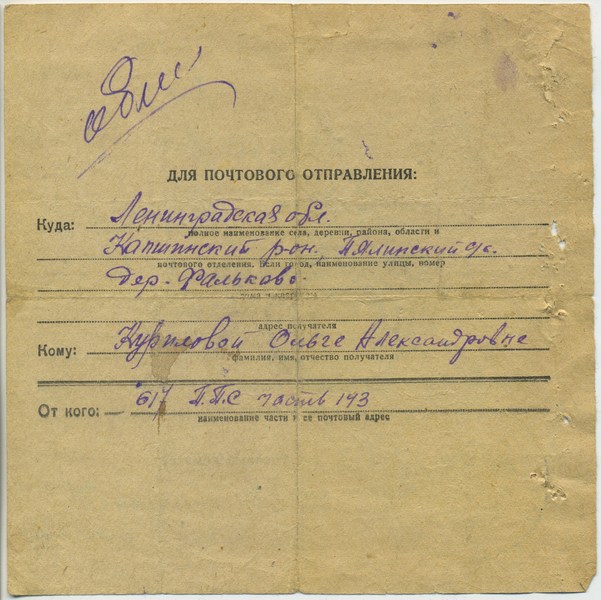 ДЛЯ ПОЧТОВОГО ОТПРАВЛЕНИЯ:
Куда: Ленинградская обл.
полное наименование села, деревни, района, области и
Капшинский р-он, Пялинский с/с.
почтового отделения. Если город, наименование улицы, номер
дер. Фальково
адрес получателя
Кому: Куриловой Ольге Александровне
фамилия, имя, отчество получателя
От кого: 617 П.П.С часть 143
наименование части и ее почтовый адрес